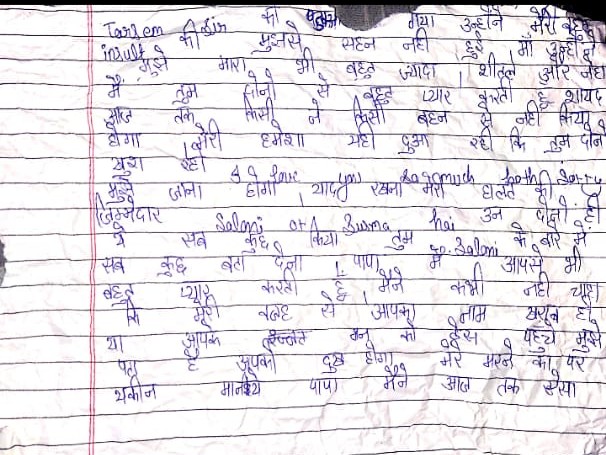 Tarsem Sir को पता गया उन्होंने मेरी बहुत
insult की मुझसे सहन नही हुई माँ उन्होंने
मुझे मारा भी बहुत ज्यादा । शीतल और नेहा
मैं तुम दोनो से बहुत प्यार करती हूँ शायद
आज तक किसी ने किसी बहन से नही किया
होगा मेरी हमेशा यही दुआ रही कि तुम दोनो
खुश रहो
I love you so much both Sorry
मुझे जाना होगा याद रखना मेरी हालत की
जिम्मेदार Saloni or Susma hai उन दोनो ही
ये सब कुछ किया तुम so. Saloni के बारे में
सब कुछ बता देना । पापा मैं आपसे भी
बहुत प्यार करती हूँ मैने कभी नही चाहा
कि मेरी वजह से आपका नाम खराब हो
या आपके मन को ठेस पहुंचे मुझे
पता है आपको दुख होगा मेरे मरने का पर
यकीन मानिये पापा मैने आज तक ऐसा